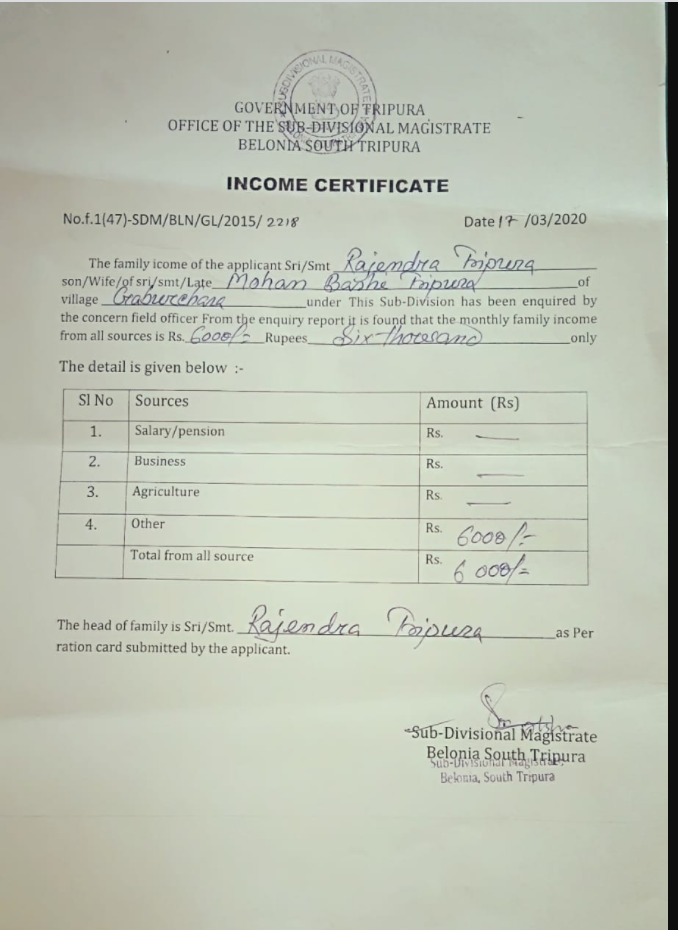 SUBDIVISIONAL MAGISTRATE
GOVERNMENT OF TRIPURA
OFFICE OF THE SUB-DIVISIONAL MAGISTRATE
BELONIA SOUTH TRIPURA
INCOME CERTIFICATE
No.f.1(47)-SDM/BLN/GL/2015/ 2218 Date 17 /03/2020
The family icome of the applicant Sri/Smt Rajendra Tripura
son/Wife/of sri/smt/Late Mohan Bashe Tripura of
village Gaburchara under This Sub-Division has been enquired by
the concern field officer From the enquiry report it is found that the monthly family income
from all sources is Rs. 6000/- Rupees Six thousand only
The detail is given below :-
Sl No Sources Amount (Rs)
1. Salary/pension Rs. —
2. Business Rs. —
3. Agriculture Rs. —
4. Other Rs. 6000/-
Total from all source Rs. 6000/=
The head of family is Sri/Smt. Rajendra Tripura as Per
ration card submitted by the applicant.
Sub-Divisional Magistrate
Belonia South Tripura
Sub-Divisional Magistrate
Belonia, South Tripura